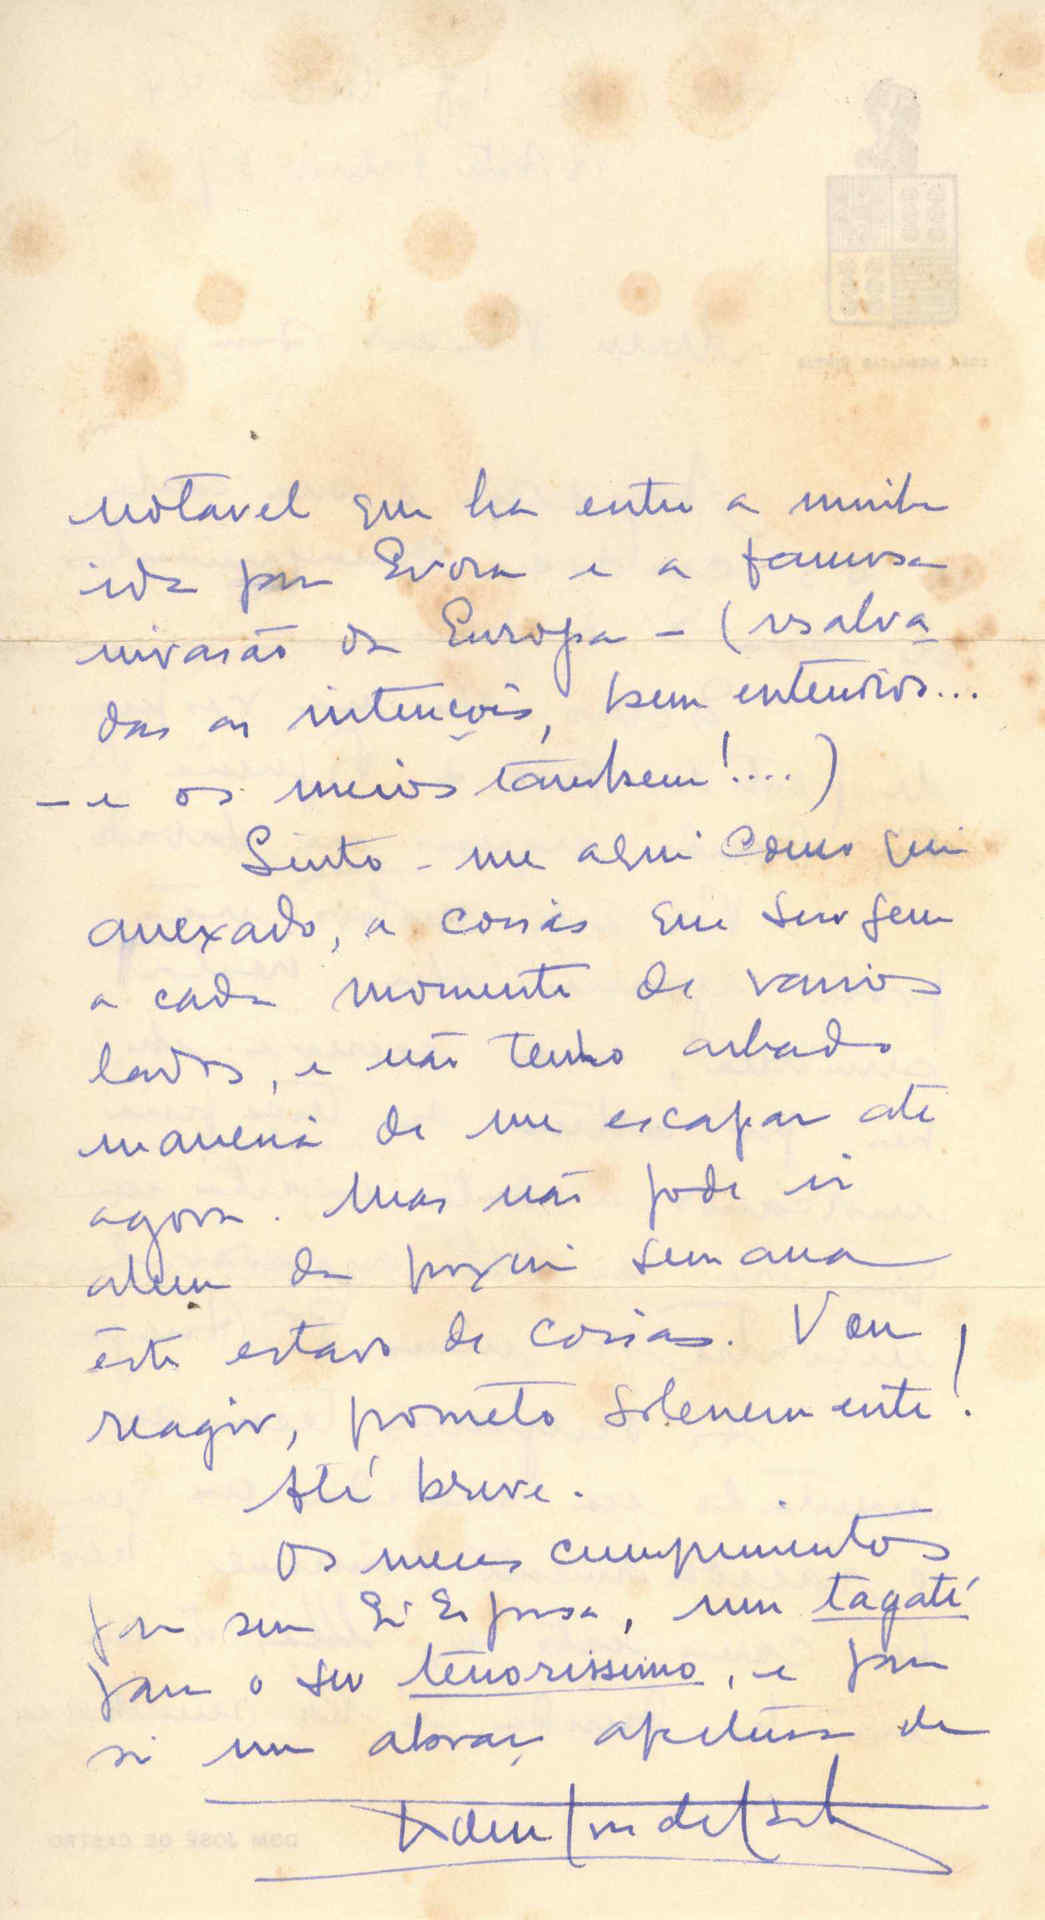 notavel que ha entre a minha
ida para Evora e a famosa
invasão da Europa - (resalva
das as intenções, bem entendido...
- e os meios tambem!....)
Sinto-me aqui como que
anexado, a coisas que surgem
a cada momento de varios
lados, e não tenho achado
maneira de me escapar até
agora. Mas não pode ir
alem da proxima semana
êste estado de coisas. Vou
reagir, prometo solenemente!
Até breve.
Os meus cumprimentos
para sua Esposa, um tagaté
para o seu tenorissimo, e para
si um abraço de
DOM JOSÉ DE CASTRO